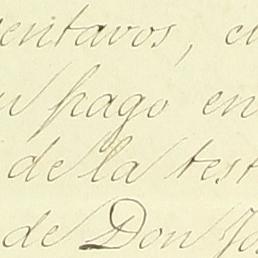 entavos, c
u pago en
de la test
de Don Jo